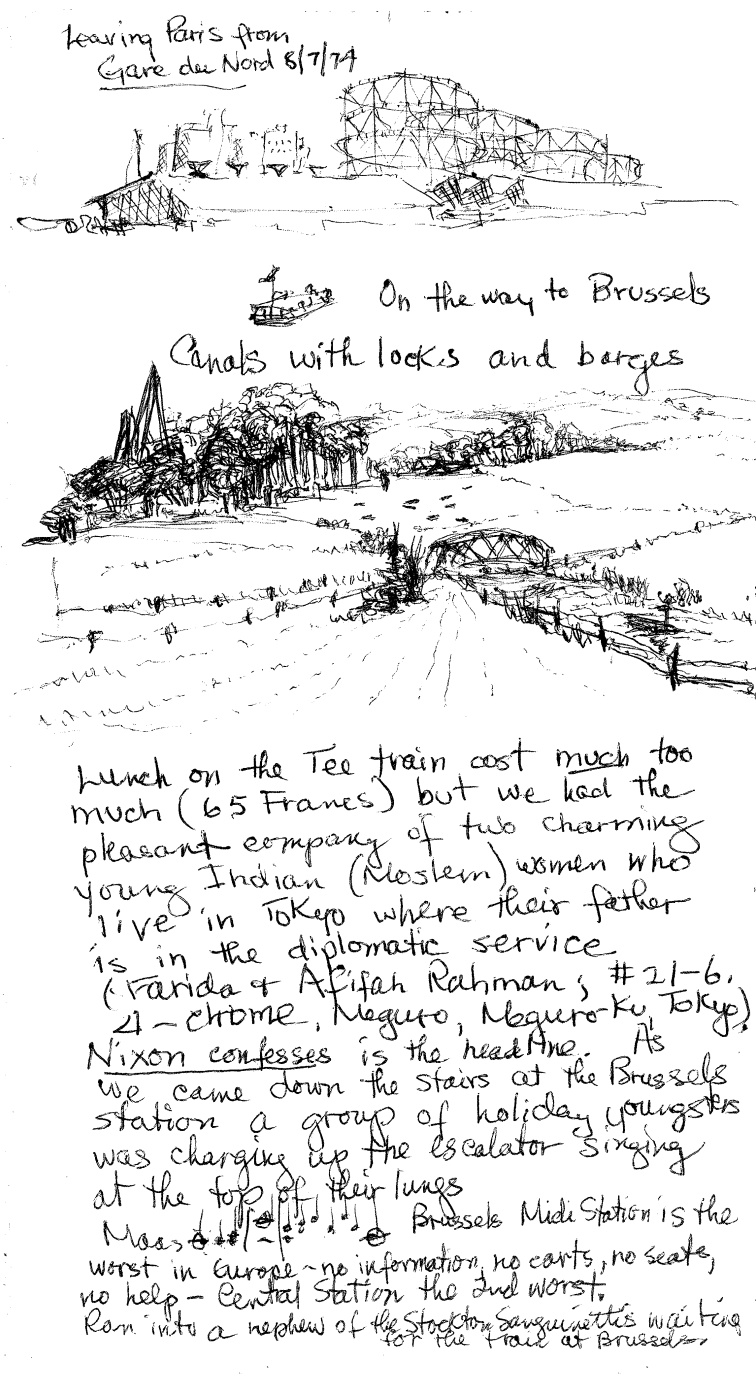 Leaving Paris from
Gare du Nord 8/7/74
On the way to Brussels
Canals with locks and barges
Lunch on the Tee train cost much too
much (65 Francs) but we had the
pleasant company of two charming
young Indian (Moslem) women who
live in Tokyo where their father
is in the diplomatic service
(Farida & Afifah Rahman; #21-6,
4-chome, Meguro, Meguro-Ku, Tokyo).
Nixon confesses is the headline. As
we came down the stairs at the Brussels
station a group of holiday youngsters
was charging up the escalator singing
at the top of their lungs
Brussels Midi Station is the
worst in Europe - no information, no carts, no seats,
no help - Central Station the 2nd worst.
Ran into a nephew of the Stockton Sanguinettis waiting
for the train at Brussels